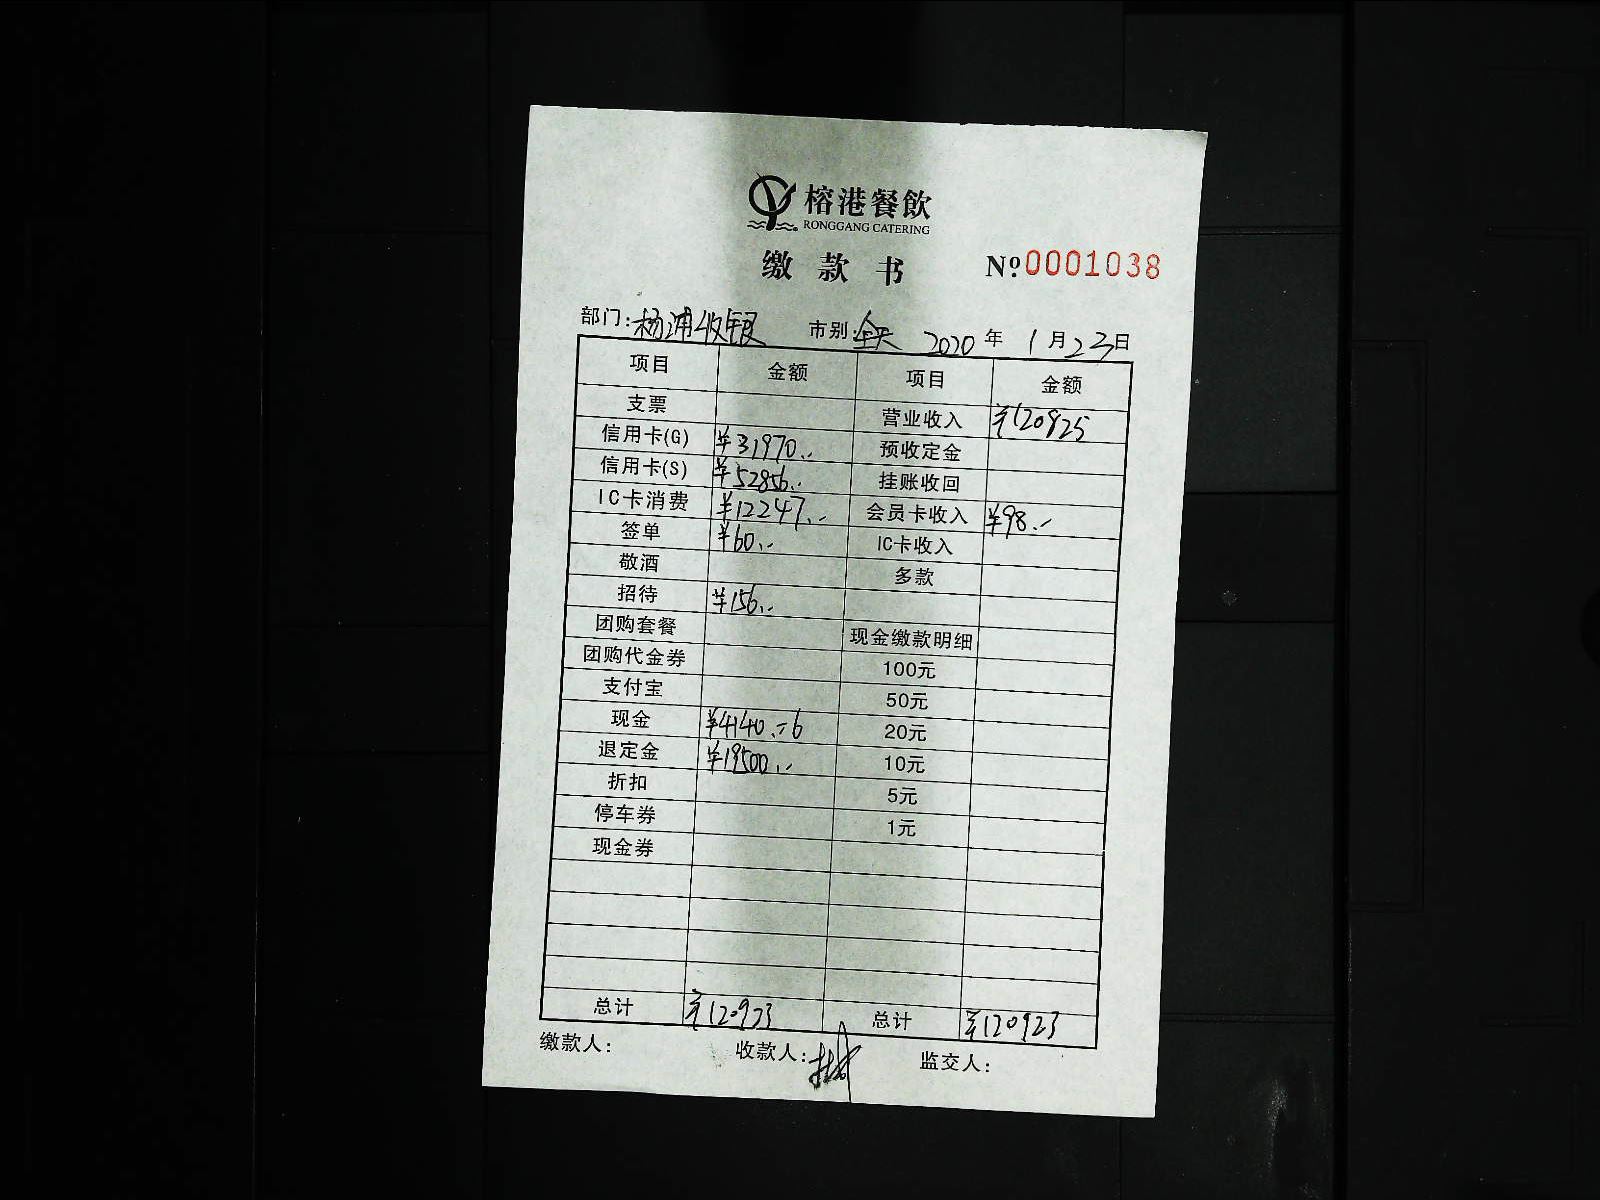 榕港餐飲
RONGGANG CATERING
缴款书 №0001038
部门:杨浦收银 市别:全天 2020年1月23日
项目 金额 项目 金额
支票 营业收入 ¥120825
信用卡(G) ¥31970.- 预收定金
信用卡(S) ¥52856.- 挂账收回
IC卡消费 ¥12247.- 会员卡收入 ¥98.-
签单 ¥60.- IC卡收入
敬酒 多款
招待 ¥156.-
团购套餐 现金缴款明细
团购代金券 100元
支付宝 50元
现金 ¥4140.-6 20元
退定金 ¥19500.- 10元
折扣 5元
停车券 1元
现金券
总计 ¥120923 总计 ¥120923
缴款人: 收款人: 监交人: